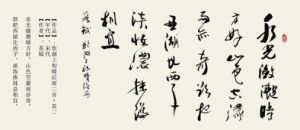 水光潋滟晴
方好山色空濛
雨亦奇欲把
西湖比西子
淡妝濃抹總
相宜
苏轼飲湖上初晴後雨
【作品】:饮湖上初晴后雨二首·其二
【年代】:宋
【作者】:苏轼
水光潋滟晴方好,山色空蒙雨亦奇。
欲把西湖比西子,淡妆浓抹总相宜。